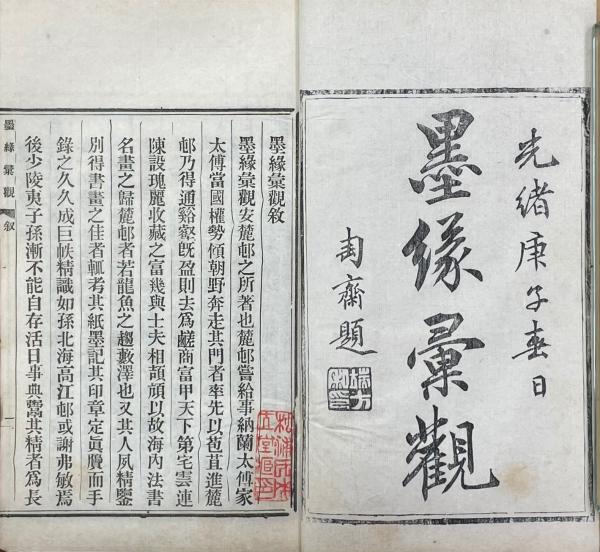 光緒庚子春日
墨緣彙觀
匋齋題
墨緣彙觀敘
墨緣彙觀安麓邨之所著也麓邨嘗給事納蘭太傅家
太傅當國權勢傾朝野奔走其門者率先以苞苴進麓
邨乃得通谿壑旣盈則去爲鹺商富甲天下第宅雲連
陳設瑰麗收藏之富幾與士夫相頡頏以故海內法書
名畫之歸麓邨者若龍魚之趨藪澤也又其人夙精鑒
別得書畫之佳者輒考其紙墨記其印章定眞贋而手
錄之久久成巨帙精識如孫北海高江邨或謝弗敏焉
後少陵夷子孫漸不能自存活日事典鬻其精者爲長
墨緣彙觀 敘 一